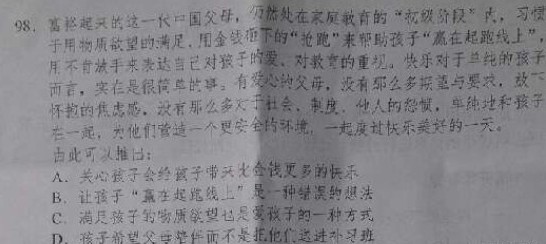 98. 富裕起来的这一代中国父母，仍然处在家庭教育的“初级阶段”内，习惯
于用物质欲望的满足、用金钱砸下的“抢跑”来帮助孩子“赢在起跑线上”，
用不肯放手来表达自己对孩子的爱、对教育的重视。快乐对于单纯的孩子
而言，实在是很简单的事。有爱心的父母，没有那么多期望与要求，放下
怀抱的焦虑感，没有那么多对于社会、制度、他人的怨恨，单纯地和孩子
在一起，为他们营造一个更安全的环境，一起度过快乐美好的一天。
由此可以推出：
A．关心孩子会给孩子带来比金钱更多的快乐
B．让孩子“赢在起跑线上”是一种错误的想法
C．满足孩子的物质欲望也是爱孩子的一种方式
D．孩子希望父母陪伴而不是把他们送进补习班